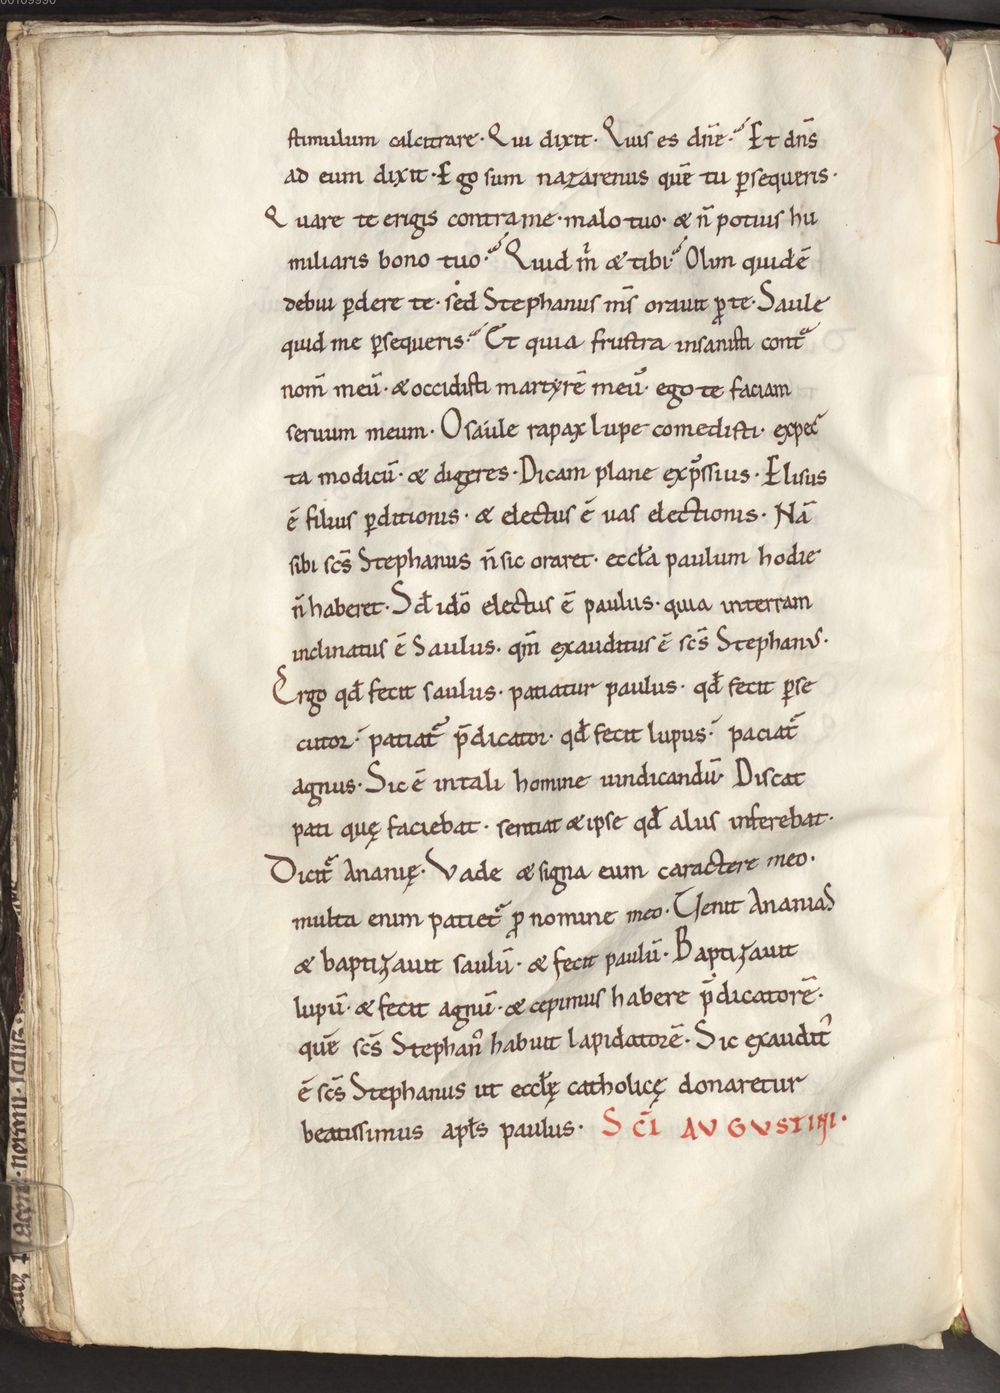 00109990
stimulum calcitrare· Qui dixit· Quis es dñe·? Et dñs
ad eum dixit· Ego sum nazarenus quē tu ꝑsequeris·
Quare te erigis contra me· malo tuo· & ñ potius hu
miliaris bono tuo·? Quid m̄ & tibi·? Olim quidē
debui ꝑdere te· sed Stephanus m̄s orauit ꝓ te· Saule
quid me ꝑsequeris·? Et quia frustra insanisti contͣ
nom̄ meū· & occidisti martyrē meū· ego te faciam
seruum meum· O saule rapax lupe comedisti· expec
ta modicū· & digeres· Dicam plane exp̄ssius· Elisus
ē filius ꝑditionis· & electus ē uas electionis· Nā
sibi scs̄ Stephanus ñ sic oraret· eccła paulum hodie
ñ haberet· Sꝺ̄ idō electus ē paulus· quia interram
inclinatus ē Saulus· qm̄ exauditus ē scs̄ Stephanus·
Ergo qd̄ fecit saulus· patiatur paulus· qd̄ fecit ꝑse
cutor· patiat̃ p̄dicator· qd̄ fecit lupus· paciat̃
agnus· Sic ē intali homine uindicandū· Discat
pati quę faciebat· sentiat & ipse qd̄ alus inferebat·
Dicit̃ Ananię· Vade & signa eum caractere meo·
multa enim patiet̃ ꝓ nomine meo· Uenit Ananias
& baptizauit saulū· & fecit paulū· Baptizauit
lupū· & fecit agnū· & cepimus habere p̄dicatorē·
quē scs̄ Stephan᾽ habuit lapidatorē· Sic exaudit᾽
ē scs̄ Stephanus ut eccłę catholicę donaretur
beatissimus apłs paulus· SC̄I AUGUSTINI·